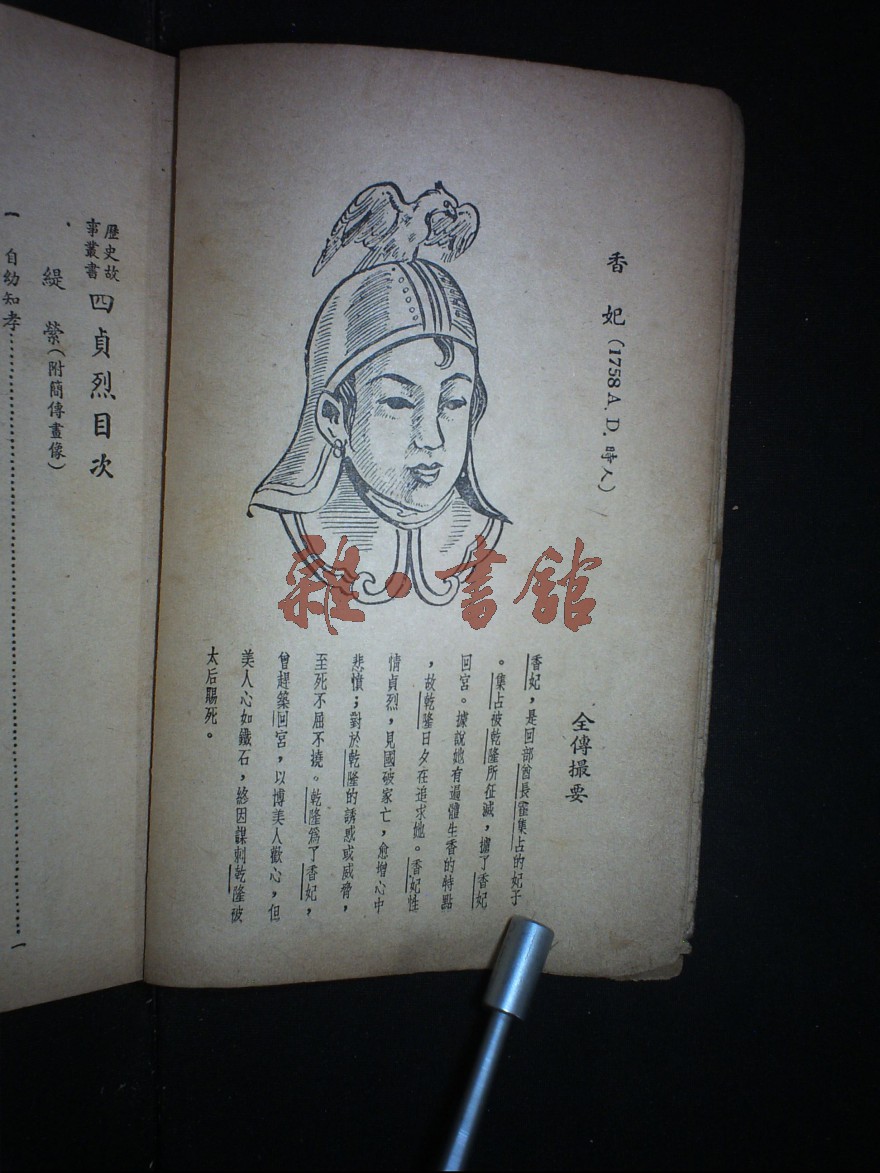 香妃(1758 A. D. 時人)
全傳撮要
香妃,是回部酋長霍集占的妃子
。集占被乾隆所征滅,擄了香妃
回宮。據說她有遍體生香的特點
,故乾隆日夕在追求她。香妃性
情貞烈,見國破家亡,愈增心中
悲憤;對於乾隆的誘惑或威脅,
至死不屈不撓。乾隆爲了香妃,
曾趕築回宮,以博美人歡心,但
美人心如鐵石,終因謀刺乾隆被
太后賜死。
歷史故事叢書 四貞烈目次
緹縈(附簡傳畫像)
一 自幼知孝……………………一
雜·書館